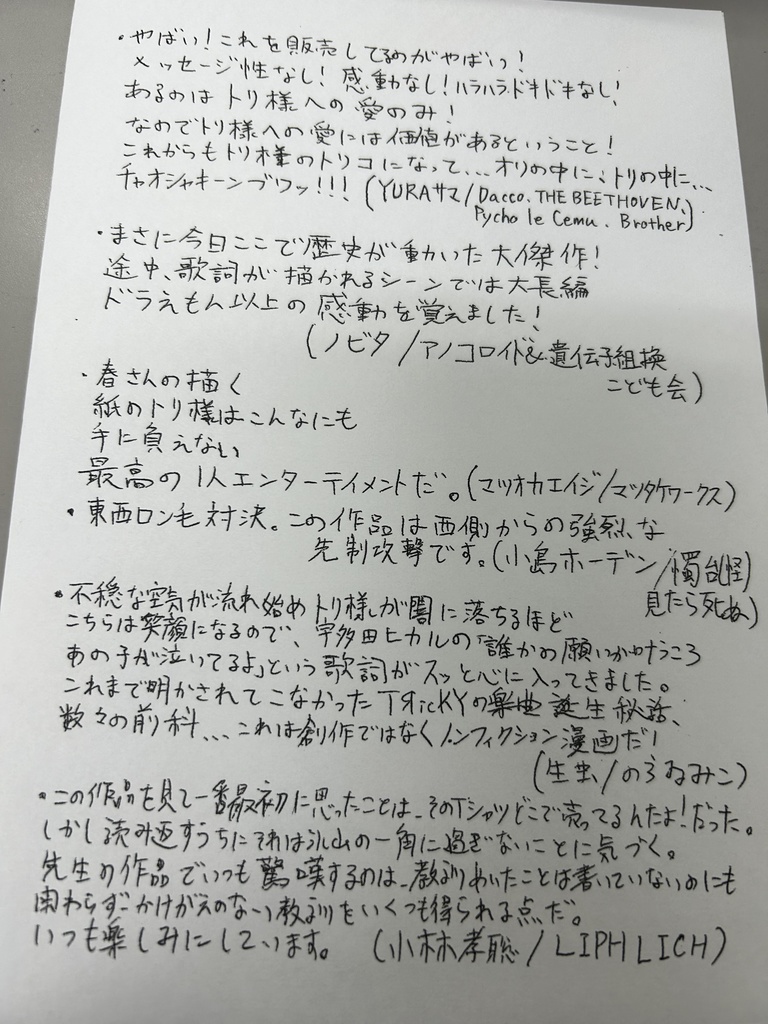 ・やばい!これを販売してるのがやばいっ!
メッセージ性なし!感動なし!ハラハラドキドキなし!
あるのはトリ様への愛のみ!
なのでトリ様への愛には価値があるということ!
これからもトリ様のトリコになって…オリの中に、トリの中に…
チャオシャキーンブワッ!!!(YURAサマ/Dacco. THE BEETHOVEN.
Pycho le Cemu. Brother)
・まさに今日ここで歴史が動いた大傑作!
途中、歌詞が描かれるシーンでは大長編
ドラえもん以上の感動を覚えました!
(ノビタ/アノコロイド&遺伝子組換
こども会)
・春さんの描く
紙のトリ様はこんなにも
手に負えない
最高の1人エンターテイメントだ。(マツオカエイジ/マツタケワークス)
・東西ロン毛対決。この作品は西側からの強烈な
先制攻撃です。(小島ホーデン/燭台(怪)
見たら死ぬ)
・不穏な空気が流れ始めトリ様が闇に落ちるほど
こちらは笑顔になるので、宇多田ヒカルの「誰かの願いが叶うころ
あの子が泣いてるよ」という歌詞がスッと心に入ってきました。
これまで明かされてこなかったTЯicKYの楽曲誕生秘話、
数々の前科…これは創作ではなくノンフィクション漫画だ!
(生虫/のうゐみこ)
・この作品を見て一番最初に思ったことは、そのTシャツどこで売ってるんだよ!だった。
しかし読み返すうちにそれは氷山の一角に過ぎないことに気づく。
先生の作品でいつも驚嘆するのは、教訓めいたことは書いていないのにも
関わらずかけがえのない教訓をいくつも得られる点だ。
いつも楽しみにしています。(小林孝聡/LIPHLICH)